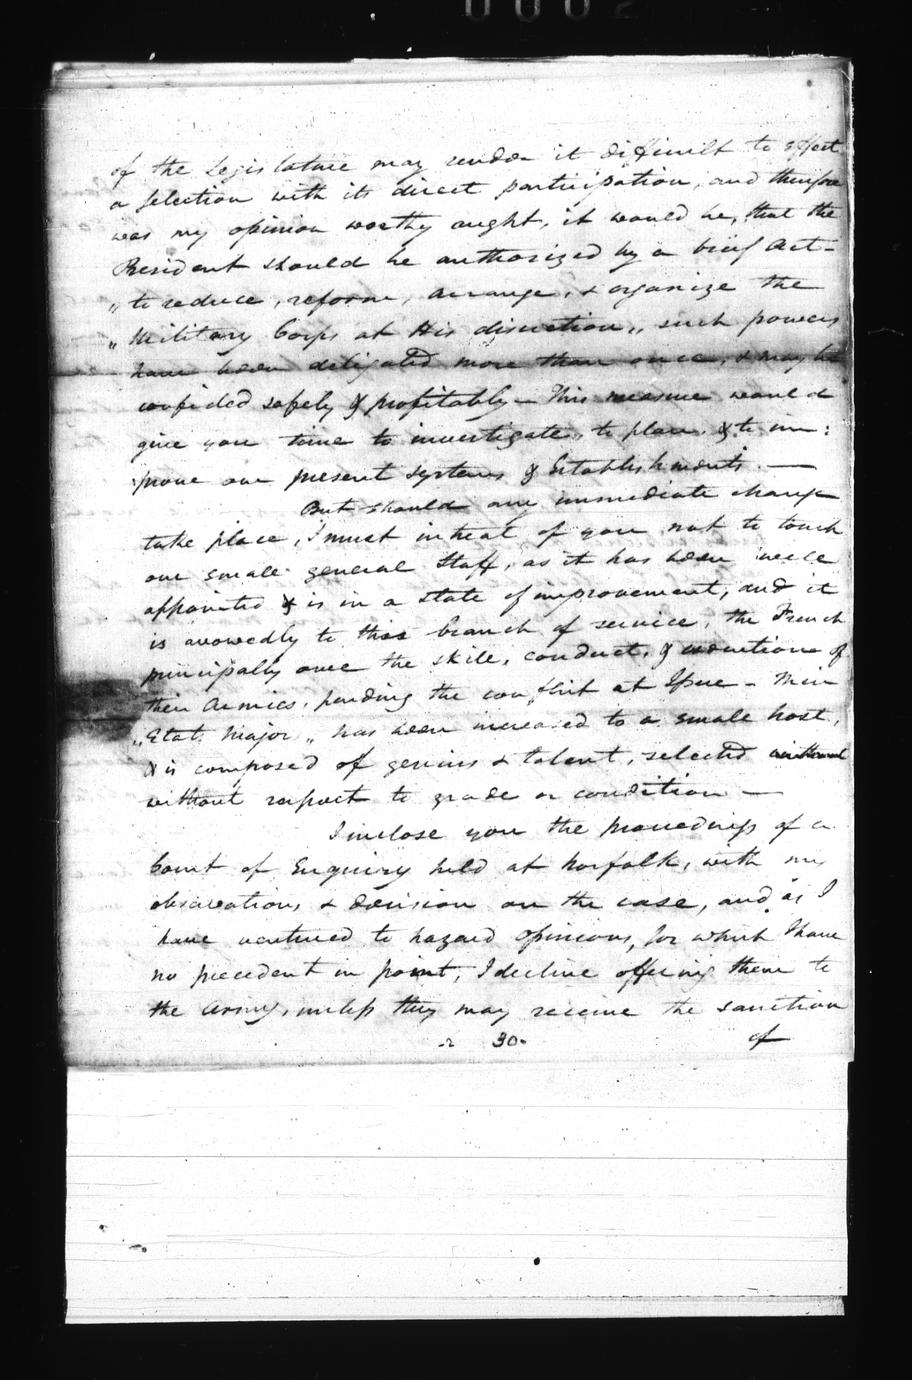 of the Legislature may render it difficult to effect
a selection with its direct participation, and therefore
was my opinion worthy aught, it would be, that the
President should be authorized by a brief Act—
"to reduce, reform, arrange, & organize the
"Military Corps at His discretion," such powers
have been deligated more than once, & may be
confided safely & profitably — This measure would
give you time to investigate, to plan, & to im:
prove our present systems & Establishments. —
But should any immediate change
take place, I must intreat of you not to touch
our small general Staff, as it has been well
appointed & is in a state of improvement, and it
is avowedly to this branch of service, the French
principally owe the skill, conduct, & execution of
their Armies, pending the conflict at Issue — Their
"Etat Major" has been increased to a small host,
& is composed of genius & talent, selected
without respect to grade or condition —
I inclose you the proceedings of a
Court of Enquiry held at Norfolk, with my
observations & decision on the case, and as I
have ventured to hazard opinions, for which I have
no precedent in point, I decline offering them to
the Army, unless they may receive the sanction
30. of